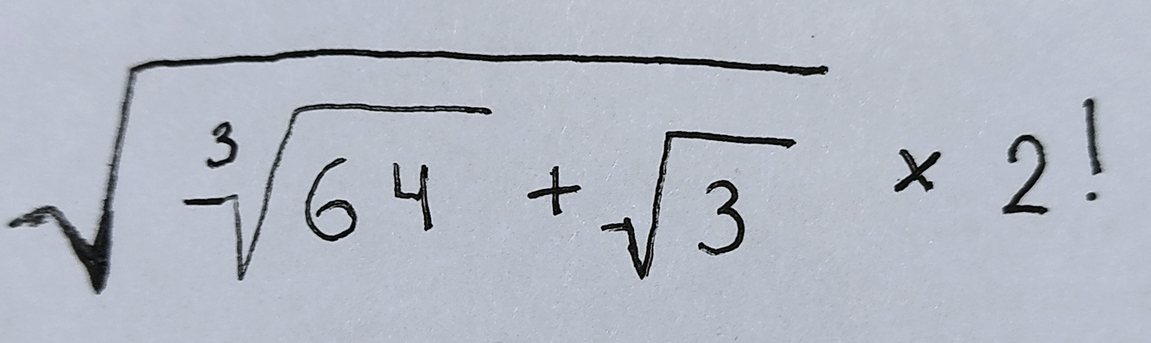 √(∛64 + √3) × 2!